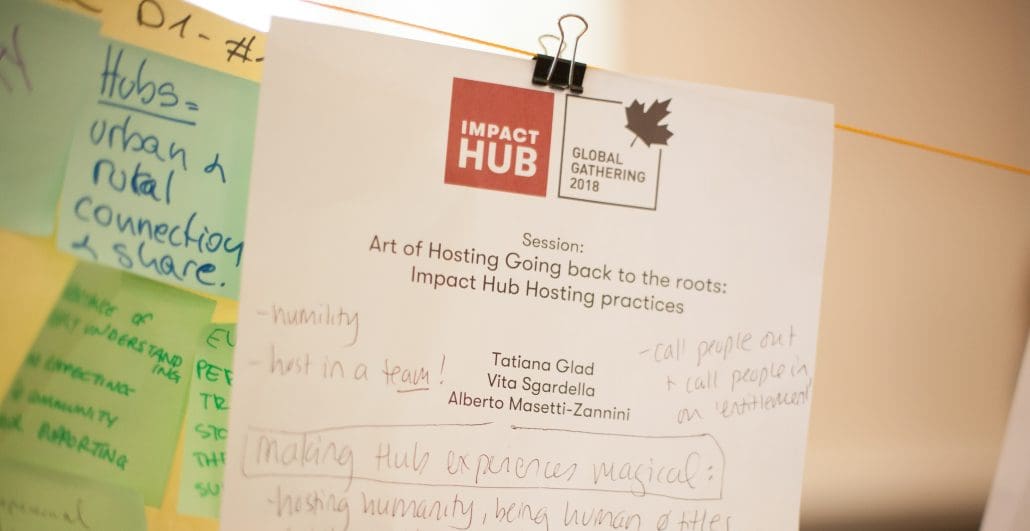 D1-#
Hubs=
urban &
rural
connection
& share.
UNDERSTAND
ING
COMMUNITY
REPORTING
IMPACT
HUB
GLOBAL
GATHERING
2018
Session:
Art of Hosting Going back to the roots:
Impact Hub Hosting practices
-humility
- host in a team!
Tatiana Glad
Vita Sgardella
Alberto Masetti-Zannini
-call people out
+ call people in
on 'entitlement'
making Hub experiences magical:
-hosting humanity, being human ø titles